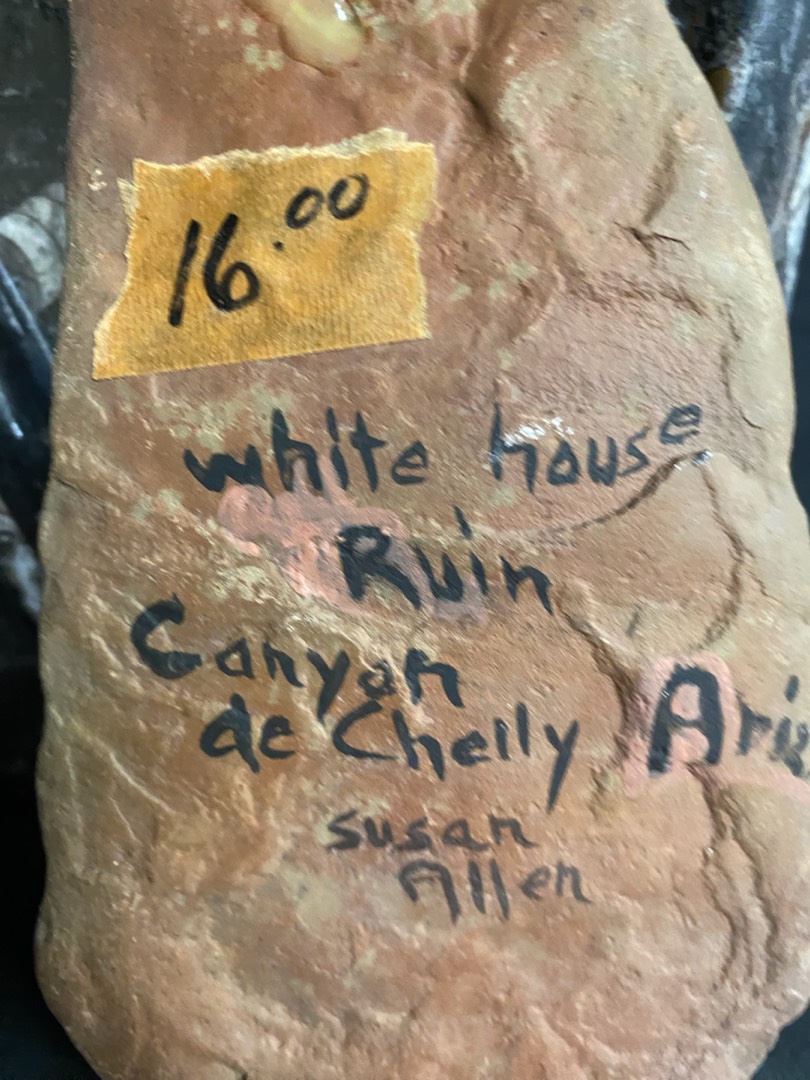 16.00
white house
Ruin
Canyon
de Chelly Ariz
susan
Allen